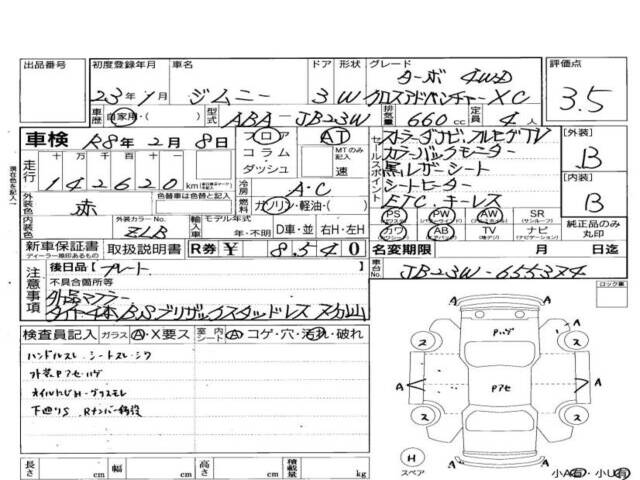 出品番号 初度登録年月 車名 ドア 形状 グレード 評価点
ターボ 4WD
23年1月 ジムニー 3 W クロスアドベンチャーXC 3.5
車歴 自家用・( ) 型式 ABA-JB23W 排気量 660 cc 定員 4人
車検 R8年2月8日 フロア AT セールスポイント ストラーダナビ.フルセグTV 【外装】
コラム MTのみ記入 カラーバックモニター B
走行 十万 万 千 百 十 一 ダッシュ 速 黒ルーフシート
142620 km 冷房 A・C シートヒーター 【内装】
外装色 赤 色替車は色替と記入 燃料 ガソリン・軽油・( ) ETC.キーレス B
内装色 外装カラーNo. 輸入車 モデル年式 PS PW AW SR
ZLB 年・不明 D車・並 右H・左H カワ AB TV ナビ 純正品のみ丸印
新車保証書 取扱説明書 R券 ¥ 8.540 名変期限 月 日迄
ディーラー捺印あるもの
注意事項 後日品 プレート 車台No. JB23W-655374
不具合箇所等 ロック車
外品マフラー
タイヤ4本B.Sブリザックスタッドレス
検査員記入 ガラス A・X要ス 室内シート A・コゲ・穴・汚れ・破れ
ハンドルスレ.シートスレ.シワ
外装Pアセ.ハゲ
オイルにじH.グラスモレ
下廻りS.Rナンバー
Pハゲ
Pアセ
A A A A A
ス ス ス ス
H
スペア
長さ cm 幅 cm 高さ cm 積載量 kg 小A有・小U有